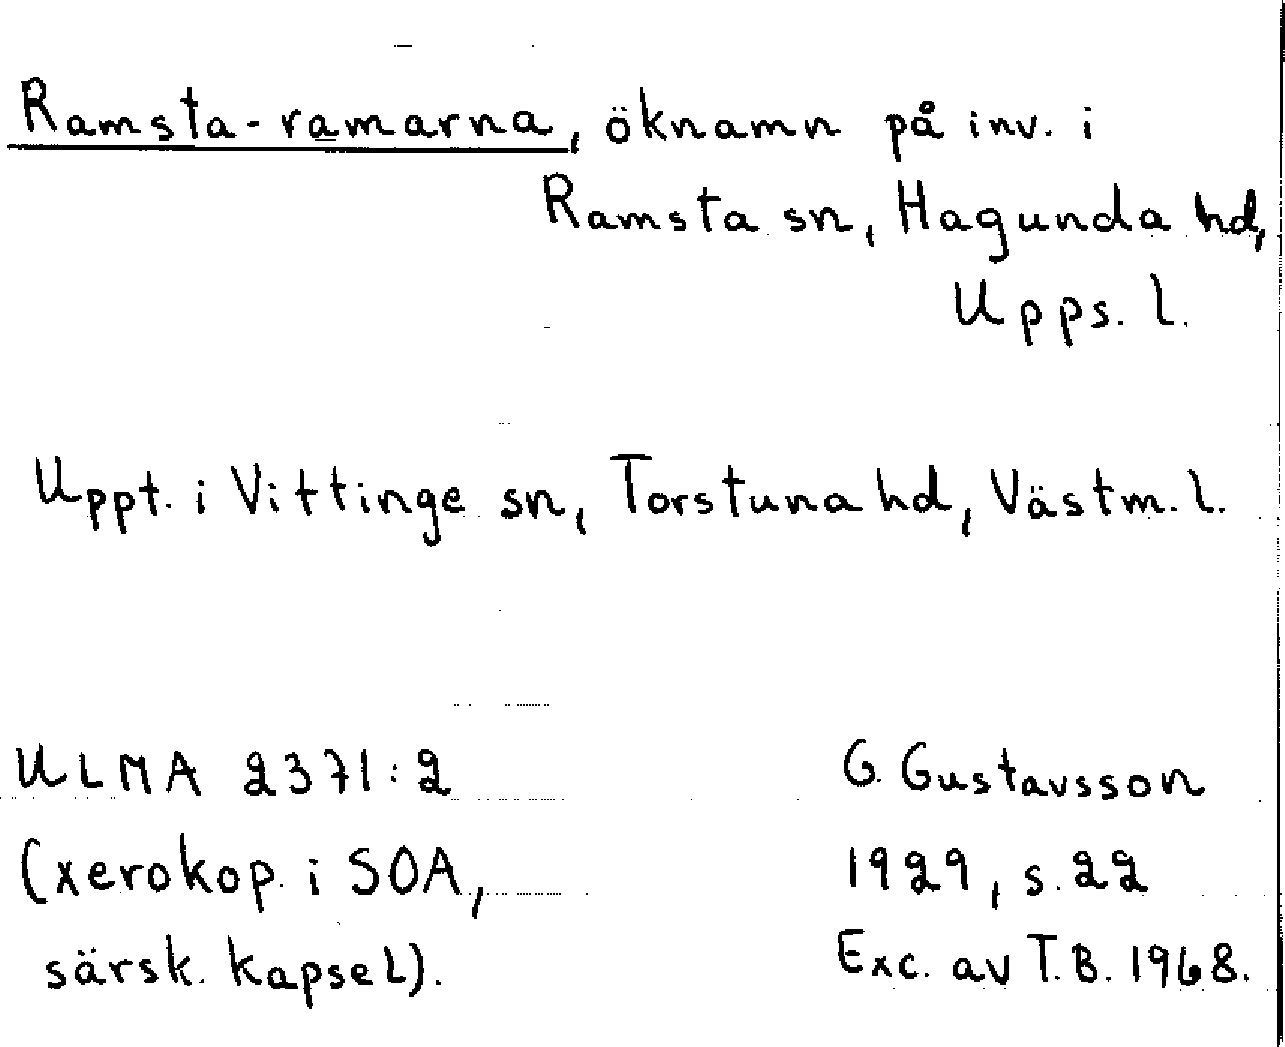 Ramsta-ramarna, öknamn på inv. i
Ramsta sn, Hagunda hd,
Upps. l.
Uppt. i Vittinge sn, Torstuna hd, Västm. l.
ULMA 2371:2
(xerokop. i SOA,
särsk. kapsel).
G. Gustavsson
1929, s. 22
Exc. av T.B. 1968.